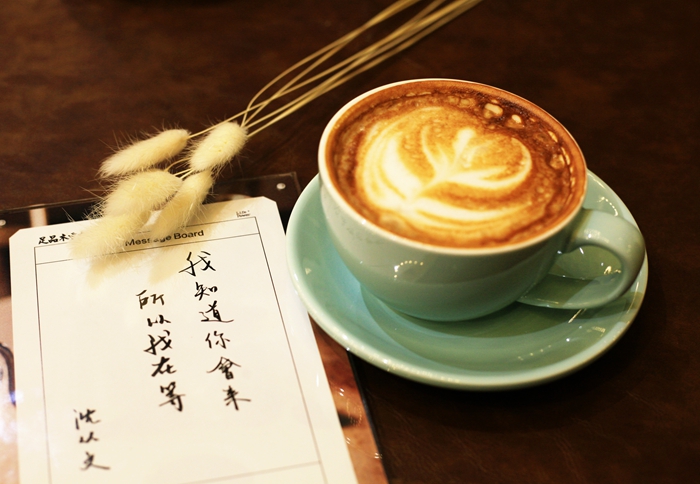 Message Board
我知道你會来
所以我在等
沈从文